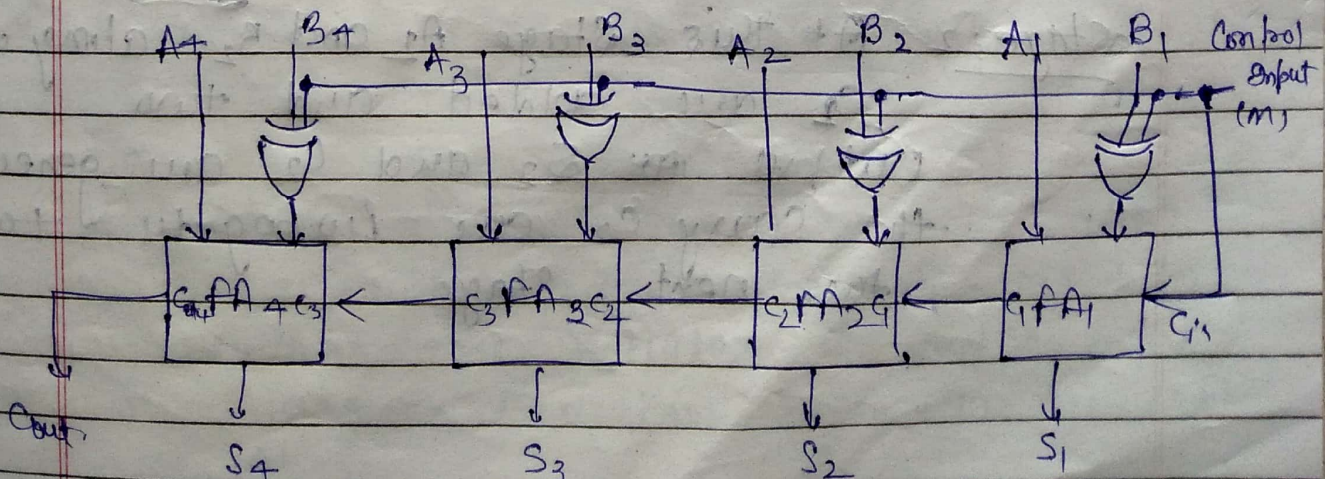 A4 B4 A3 B3 A2 B2 A1 B1 Control
Input
(M)
C4 FA4 C3 C3 FA3 C2 C2 FA2 C1 C1 FA1 Cin
Cout
S4 S3 S2 S1